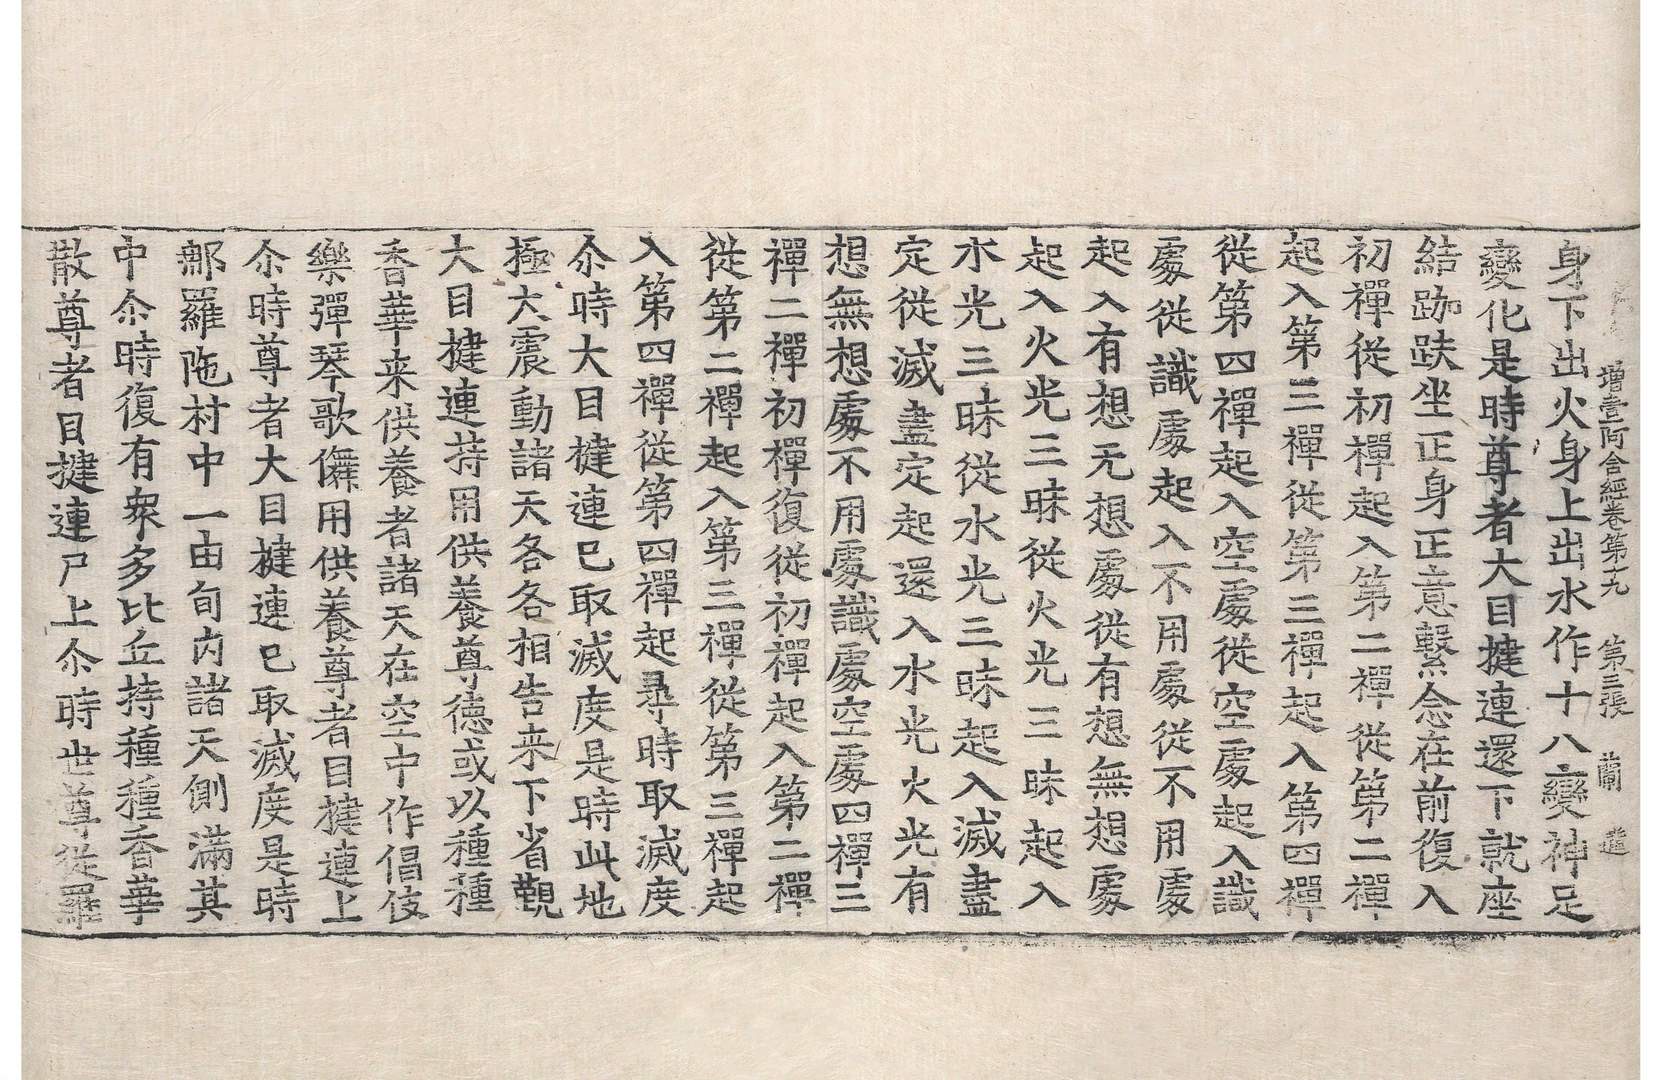 增壹阿含經卷第九 第三張 蘭
身下出火身上出水作十八變神足
變化是時尊者大目揵連還下就座
結跏趺坐正身正意繫念在前復入
初禪從初禪起入第二禪從第二禪
起入第三禪從第三禪起入第四禪
從第四禪起入空處從空處起入識
處從識處起入不用處從不用處
起入有想无想處從有想無想處
起入火光三昧從火光三昧起入
水光三昧從水光三昧起入滅盡
定從滅盡定起還入水光火光有
想無想處不用處識處空處四禪三
禪二禪初禪復從初禪起入第二禪
從第二禪起入第三禪從第三禪起
入第四禪從第四禪起尋時取滅度
尒時大目揵連已取滅度是時此地
極大震動諸天各各相告来下省覲
大目揵連持用供養尊德或以種種
香華来供養者諸天在空中作倡伎
樂彈琴歌儛用供養尊者目揵連上
尒時尊者大目揵連已取滅度是時
那羅陁村中一由旬內諸天側滿其
中尒時復有衆多比丘持種種香華
散尊者目揵連尸上尒時世尊從羅